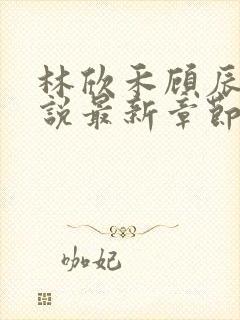 林欣禾顾辰
說最新章節
咖妃